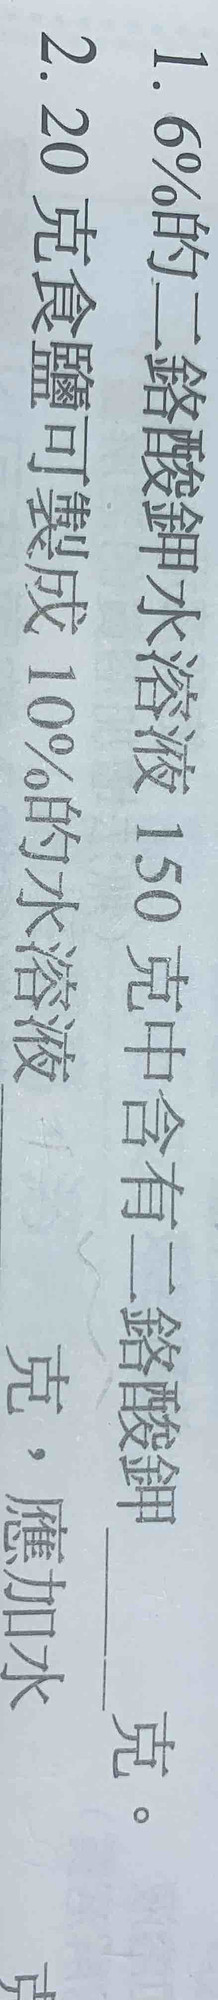 1. 6%的二鉻酸鉀水溶液 150 克中含有二鉻酸鉀______克。
2. 20 克食鹽可製成 10%的水溶液______克，應加水